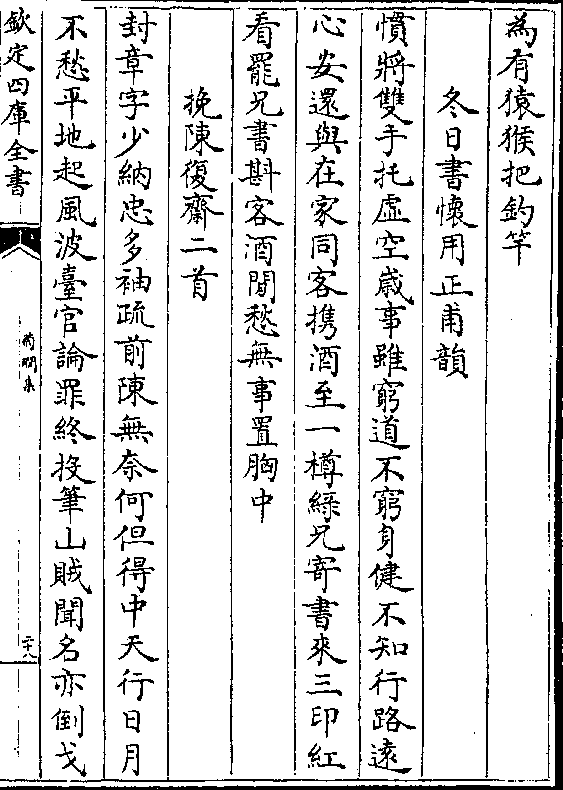 為有猿猴把釣竿
冬日書懷用正甫韻
慣將雙手托虛空歲事雖窮道不窮身健不知行路遠
心安還與在家同客携酒至一樽綠兄寄書來三印紅
看罷兄書斟客酒閒愁無事置胸中
挽陳復齋二首
封章字少納忠多袖疏前陳無奈何但得中天行日月
不愁平地起風波臺官論罪終投筆山賊聞名亦倒戈
欽定四庫全書
澗集
二十八